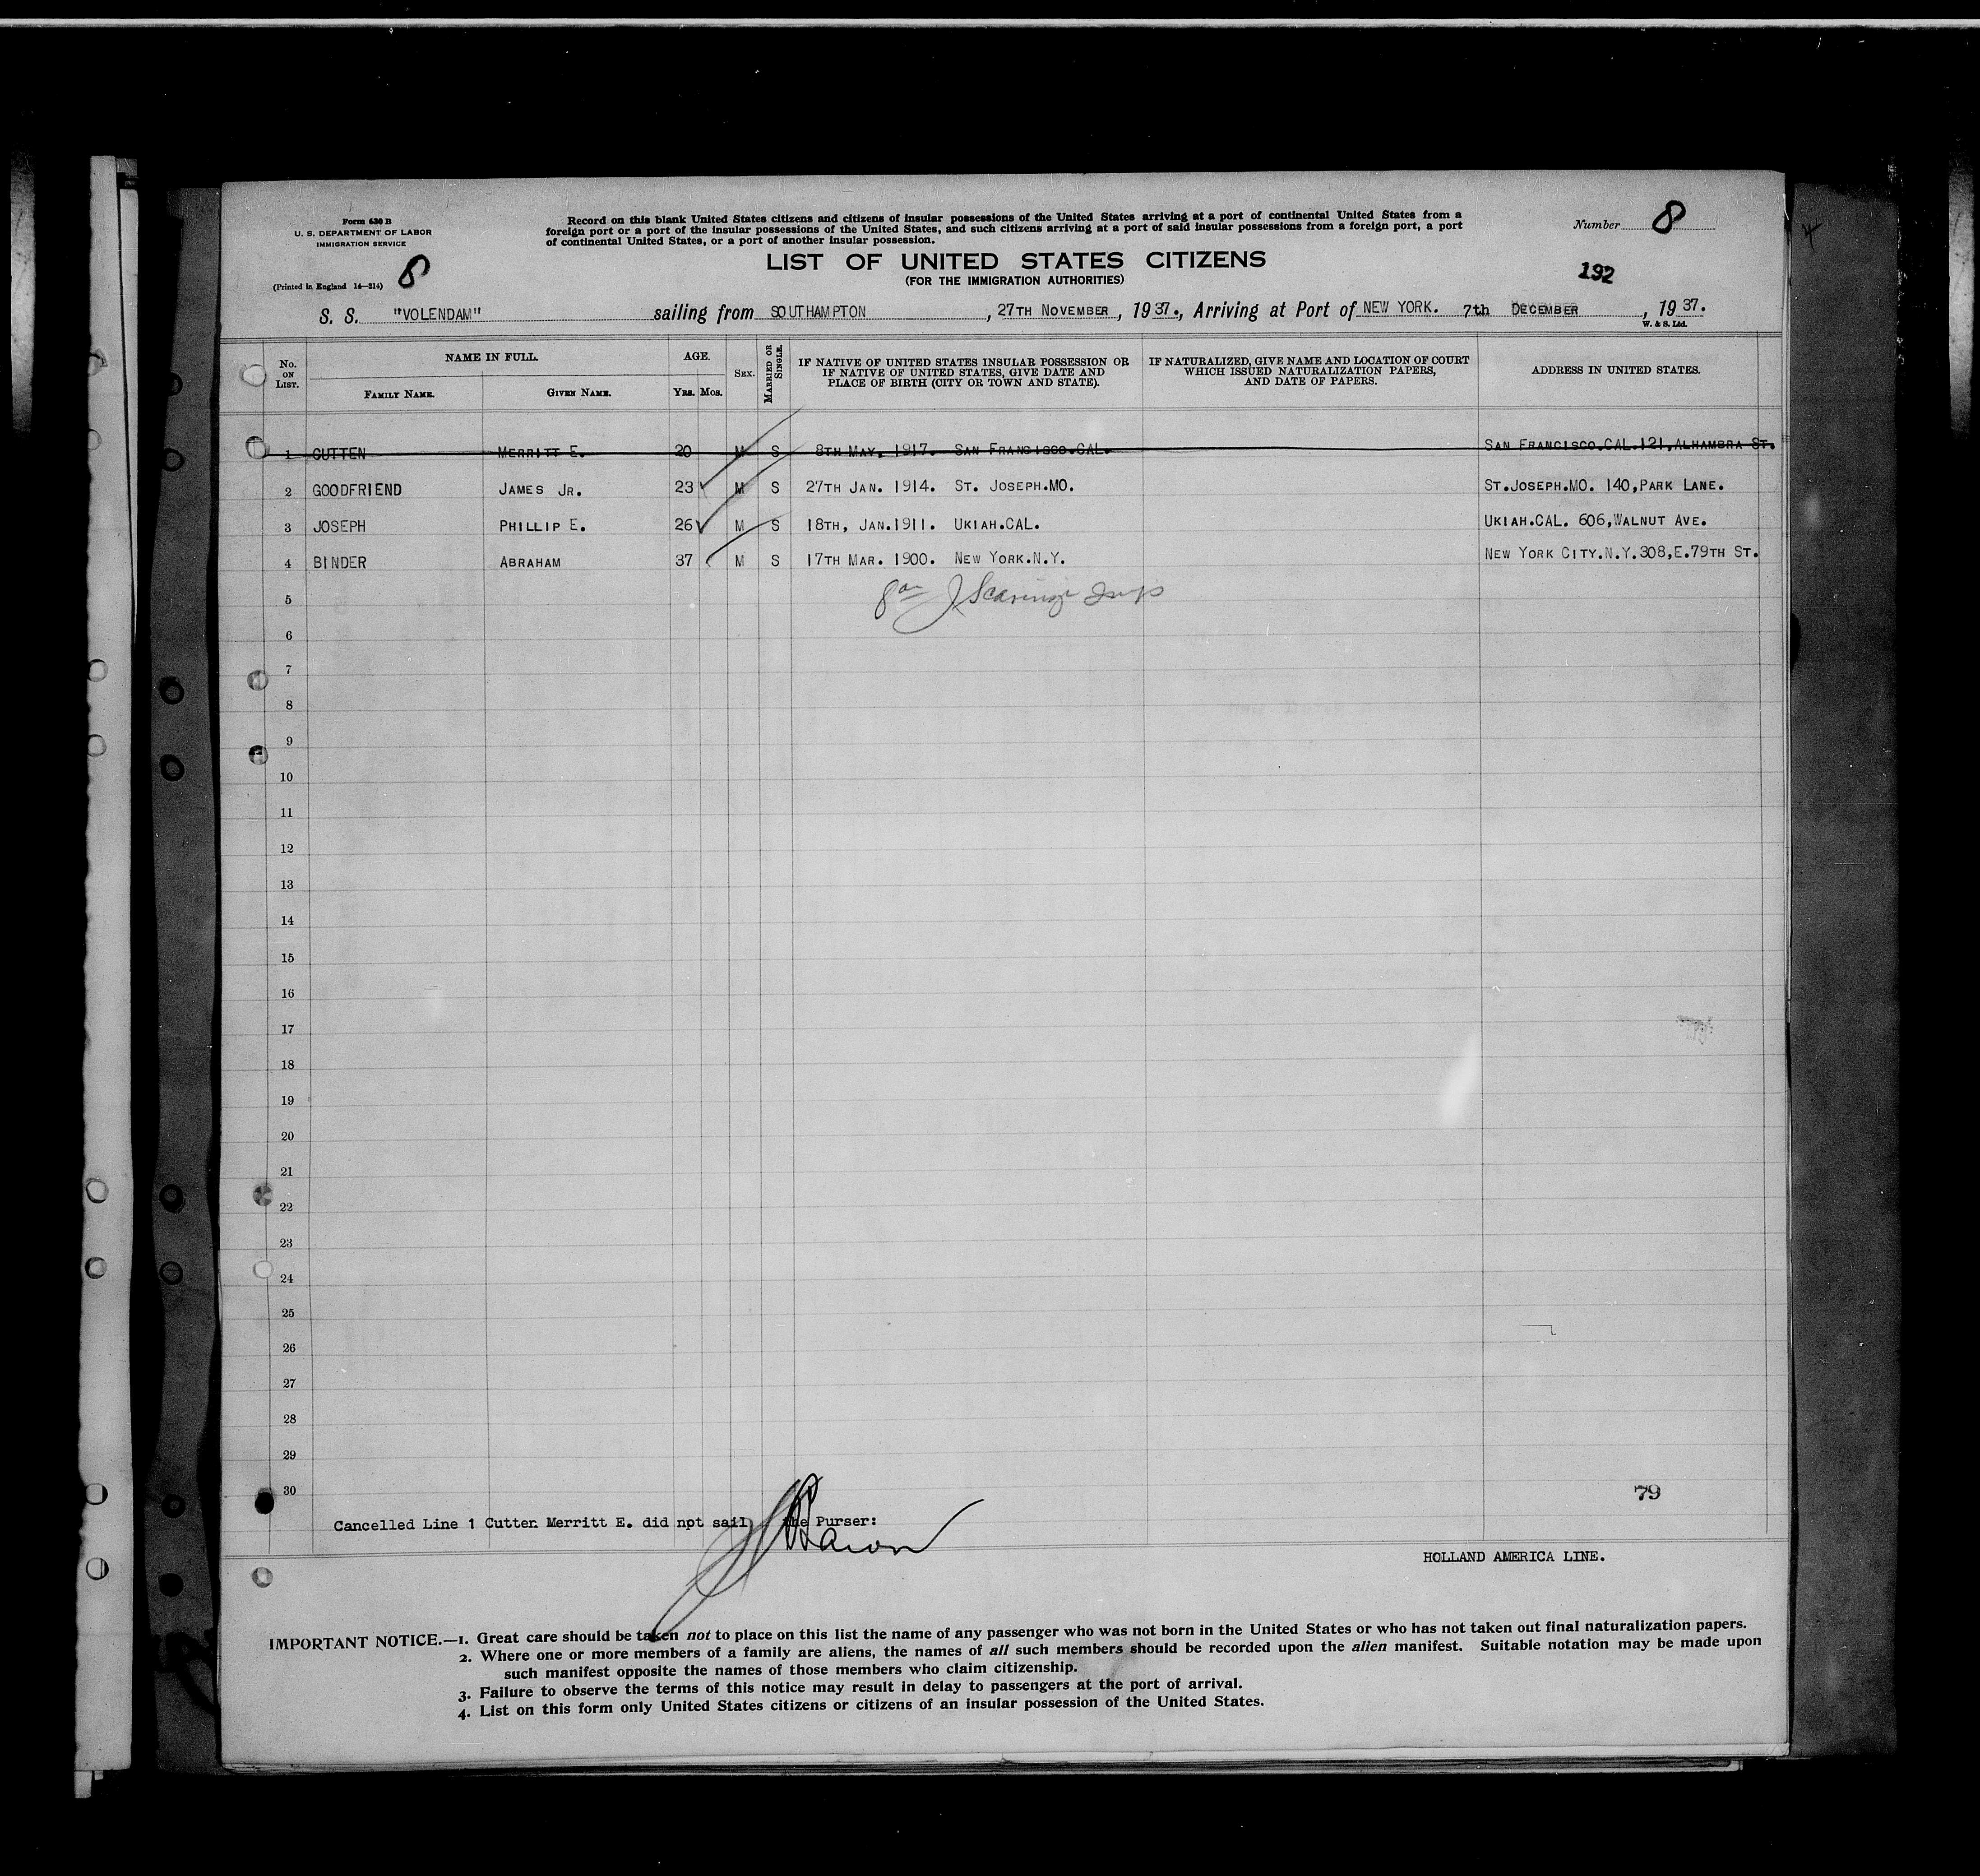 Form 630 B
U. S. DEPARTMENT OF LABOR
IMMIGRATION SERVICE
(Printed in England 14—214)
8
Record on this blank United States citizens and citizens of insular possessions of the United States arriving at a port of continental United States from a
foreign port or a port of the insular possessions of the United States, and such citizens arriving at a port of said insular possessions from a foreign port, a port
of continental United States, or a port of another insular possession.
Number 8
LIST OF UNITED STATES CITIZENS
(FOR THE IMMIGRATION AUTHORITIES)
192
S. S. "VOLENDAM" sailing from SOUTHAMPTON, 27TH NOVEMBER, 1937., Arriving at Port of NEW YORK. 7th DECEMBER, 1937.
W. & S. Ltd.
No. ON LIST.
NAME IN FULL.
FAMILY NAME.
GIVEN NAME.
AGE.
YRS. MOS.
SEX.
MARRIED OR SINGLE.
IF NATIVE OF UNITED STATES INSULAR POSSESSION OR
IF NATIVE OF UNITED STATES, GIVE DATE AND
PLACE OF BIRTH (CITY OR TOWN AND STATE).
IF NATURALIZED, GIVE NAME AND LOCATION OF COURT
WHICH ISSUED NATURALIZATION PAPERS,
AND DATE OF PAPERS.
ADDRESS IN UNITED STATES.
1 CUTTEN MERRITT E. 20 M S 8TH MAY. 1917. SAN FRANCISCO.CAL. SAN FRANCISCO.CAL.121,ALHAMBRA ST.
2 GOODFRIEND JAMES JR. 23 M S 27TH JAN. 1914. ST. JOSEPH.MO. ST.JOSEPH.MO. 140,PARK LANE.
3 JOSEPH PHILLIP E. 26 M S 18TH, JAN.1911. UKIAH.CAL. UKIAH.CAL. 606,WALNUT AVE.
4 BINDER ABRAHAM 37 M S 17TH MAR. 1900. NEW YORK.N.Y. NEW YORK CITY.N.Y.308,E.79TH ST.
5
6
7
8
9
10
11
12
13
14
15
16
17
18
19
20
21
22
23
24
25
26
27
28
29
30
79
Cancelled Line 1 Cutten Merritt E. did npt sail the Purser:
HOLLAND AMERICA LINE.
IMPORTANT NOTICE.—1. Great care should be taken not to place on this list the name of any passenger who was not born in the United States or who has not taken out final naturalization papers.
2. Where one or more members of a family are aliens, the names of all such members should be recorded upon the alien manifest. Suitable notation may be made upon
such manifest opposite the names of those members who claim citizenship.
3. Failure to observe the terms of this notice may result in delay to passengers at the port of arrival.
4. List on this form only United States citizens or citizens of an insular possession of the United States.